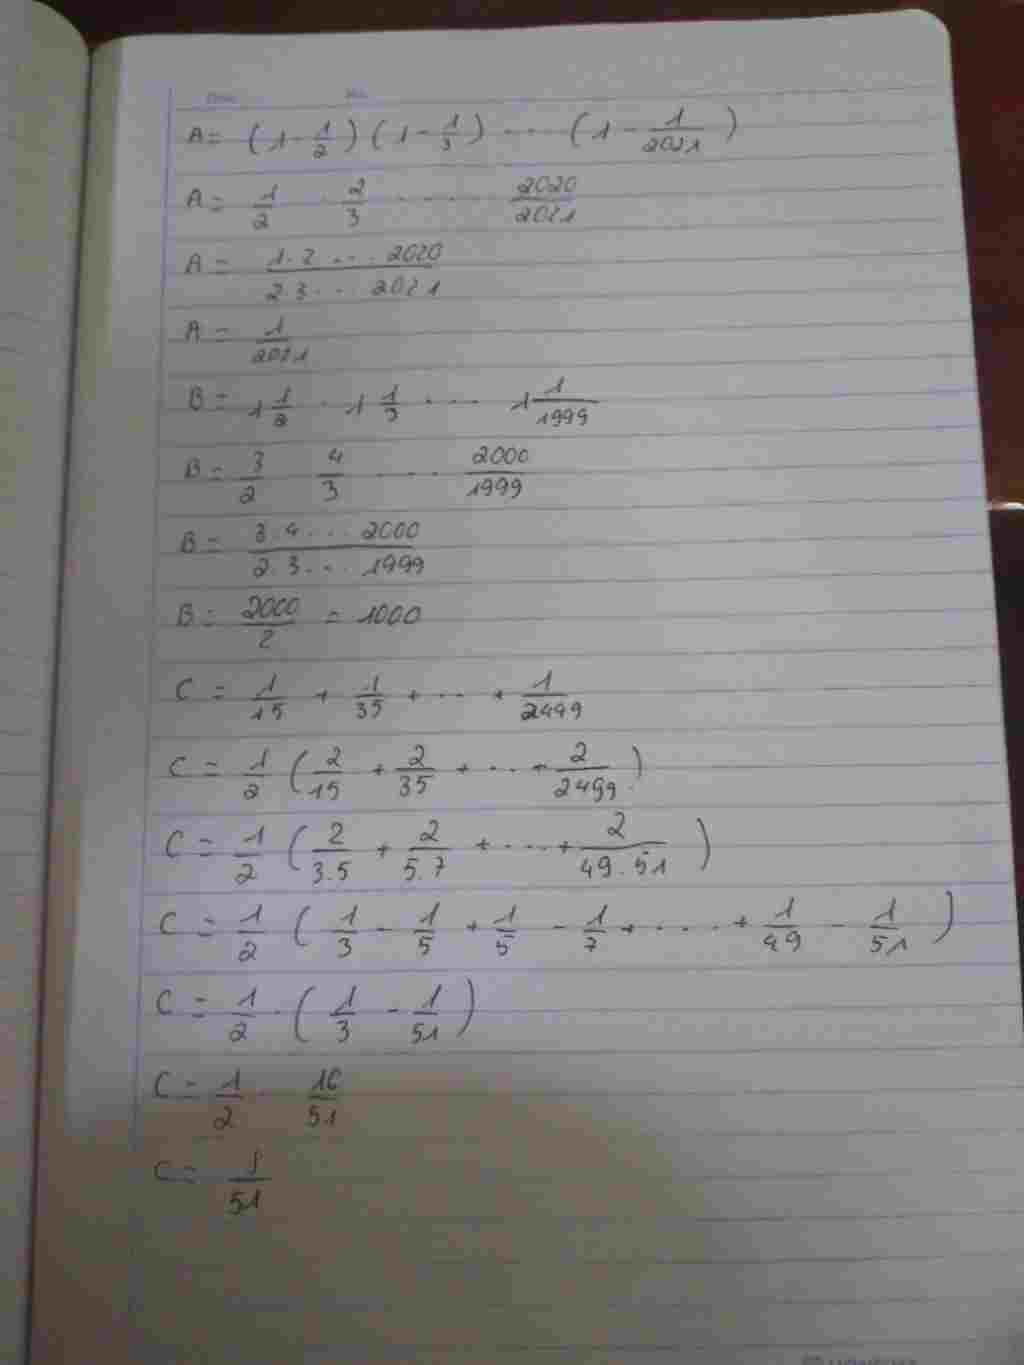 A = (1 - 1/2) (1 - 1/3) .... (1 - 1/2021)
A = 1/2 . 2/3 ..... 2020/2021
A = 1.2 ... 2020 / 2.3 ... 2021
A = 1/2021
B = 1 1/2 . 1 1/3 .... 1 1/1999
B = 3/2 4/3 .... 2000/1999
B = 3.4 ... 2000 / 2.3 ... 1999
B = 2000/2 = 1000
C = 1/15 + 1/35 + ... + 1/2499
C = 1/2 (2/15 + 2/35 + ... + 2/2499)
C = 1/2 (2/3.5 + 2/5.7 + .... + 2/49.51)
C = 1/2 (1/3 - 1/5 + 1/5 - 1/7 + .... + 1/49 - 1/51)
C = 1/2 . (1/3 - 1/51)
C = 1/2 16/51
C = 8/51